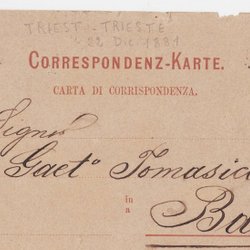 TRIEST - TRIESTE
22 DIC 1881
CORRESPONDENZ-KARTE.
CARTA DI CORRISPONDENZA.
Signor
Gaet° Tomasi
in
a
Ba